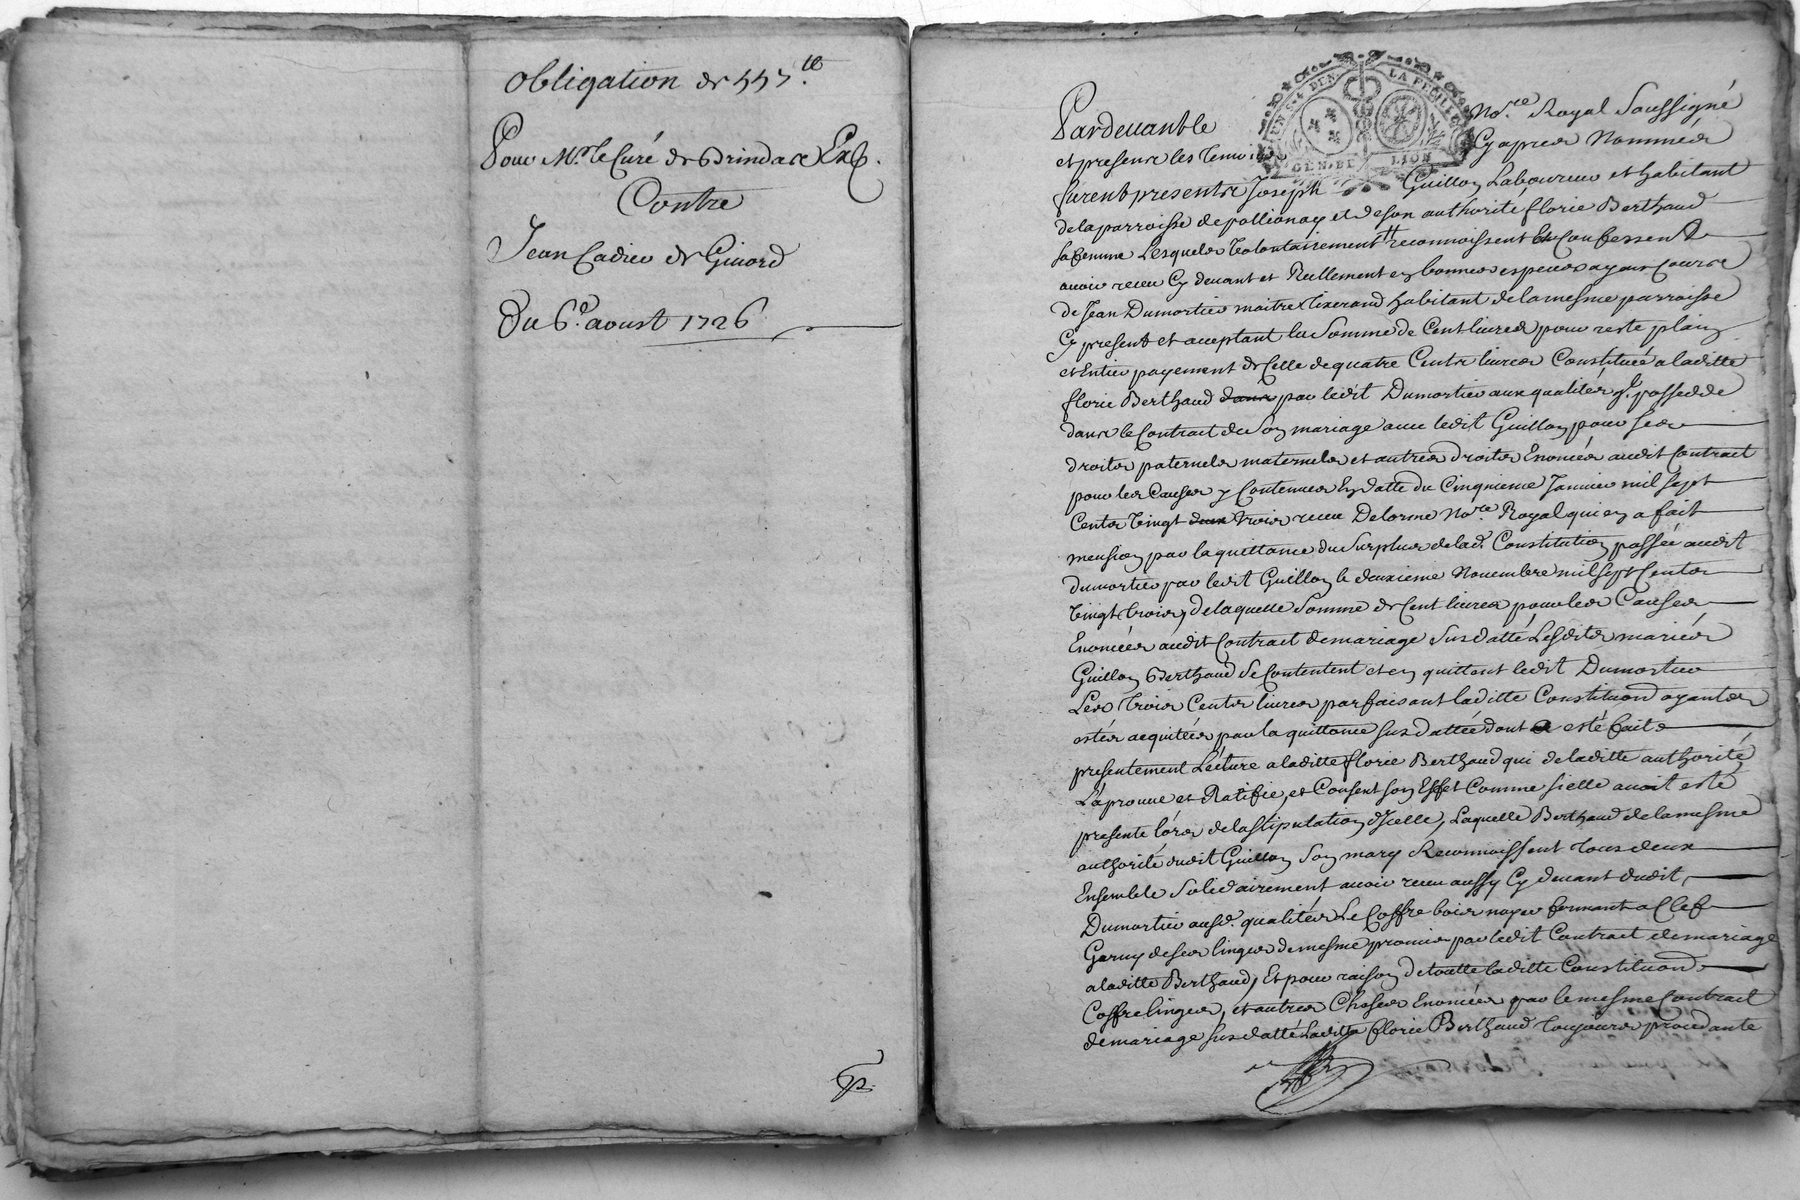 obligation de 447.ᵗᵗ
Pour Mʳ le Curé de Brindas Exp.
Contre
Jean Cadieu de Givord
Du 6.ᵉ aoust 1726
UN S. 4 DEN. LA FEUILLE
GEN. DE LION
Pardevant le Noʳᵉ. Royal Soussigné
et presens les temoins Cy apres Nommés
furent presents Joseph Guillon Laboureur et habitant
de la parroisse de pollionay et de son authorité florie Berthaud
sa femme Lesquels Volontairement reconnoissent Et Confessent
avoir receu Cy devant et Réellement en bonnes especes ayant Cours
de Jean Dumortier maitre tixerand habitant de la mesme parroisse
Cy present et aceptant la Somme de Cent livres pour reste plain
et Entier payement de Celle de quatre Cents livres Constituée a laditte
florie Berthaud dans par ledit Dumortier aux qualités q'l possedde
dans le Contrait de Son mariage avec ledit Guillon pour ses
droits paternels maternels et autres droits Enoncés audit Contrait
pour les Causes y Contenues En datte du Cinquieme Janvier mil sept
Cents vingt deux trois receu Delorme Noʳᵉ. Royal qui en a fait
mension par la quittance du Surplus de lad. Constitution passée audit
Dumortier par ledit Guillon le deuxieme Novembre mil sept Cents
vingt trois, de laquelle Somme de Cent livres pour les Causes
Enoncées audit Contrait de mariage Sus datté Lesdits mariés
Guillon Berthaud Se Contentent et en quittent ledit Dumortier
Les trois Cents livres parfaisant laditte Constitution ayants
estés acquitées par la quittance sus dattée dont a esté fait
presentement Lecture a laditte florie Berthaud qui de laditte authorité
L'aprouve et Ratifie, et Consent son Effet Comme si elle avoit esté
presente lors de la stipulation d'Icelle, Laquelle Berthaud de la mesme
authorité dudit Guillon Son mary Reconnoissent tous deux
Ensemble Solidairement avoir receu aussy Cy devant dudit
Dumortier ausd. qualités Le Coffre bois noyer fermant a Clef
Garny de ses linges de mesme promis par ledit Contrait de mariage
a laditte Berthaud, Et pour raison de toutte laditte Constitution
Coffre linges, et autres Choses Enoncées par le mesme Contrait
de mariage sus datté Laditte florie Berthaud toujours procedante